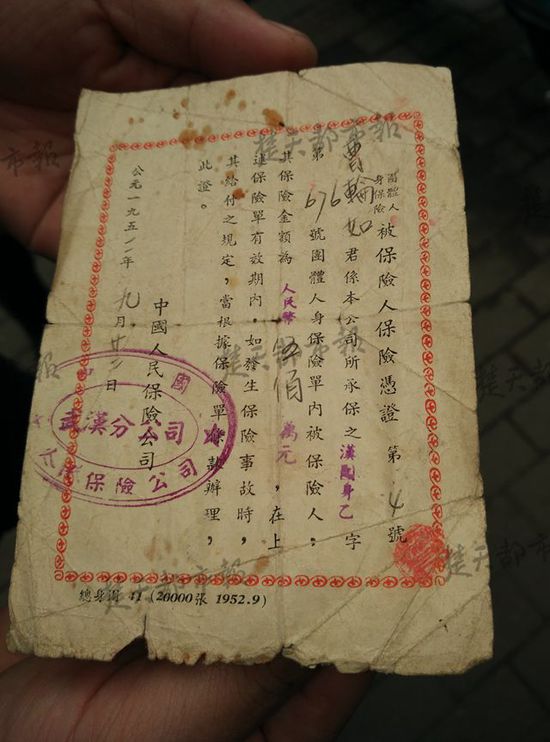 團體人身保險 被保險人保險憑證 第 4 號
曹輪如 君係本公司所承保之漢團身乙字
第 676 號團體人身保險單內被保險人，
其保險金額為人民幣伍佰萬元，在上
述保險單有效期內，如發生保險事故時，
其給付之規定，當根據保險單條款辦理，
此證。
中國人民保險公司
公元一九五二年九月廿二日
武漢分公司
保險公司
總身團 41 (20000張 1952.9)
楚天都市報
楚天都市報
楚天都市報
楚天都市報
市報